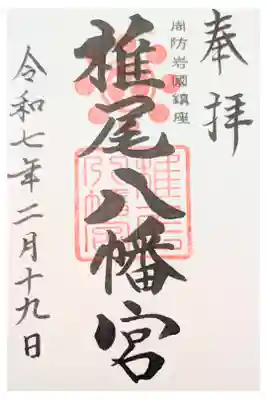 奉拝
周防岩國鎮座
椎尾八幡宮
令和七年二月十九日
椎尾八幡宮